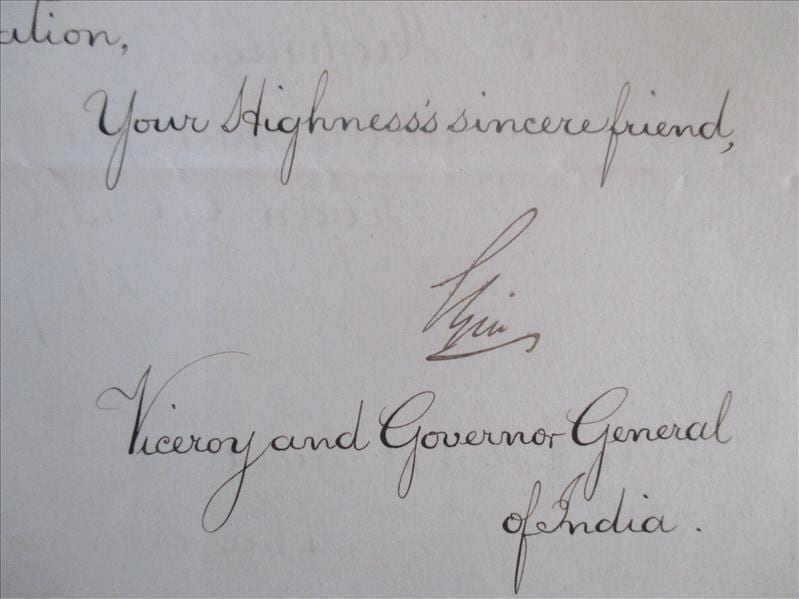 ation,
Your Highness's sincere friend,
Elgin
Viceroy and Governor General
of India.